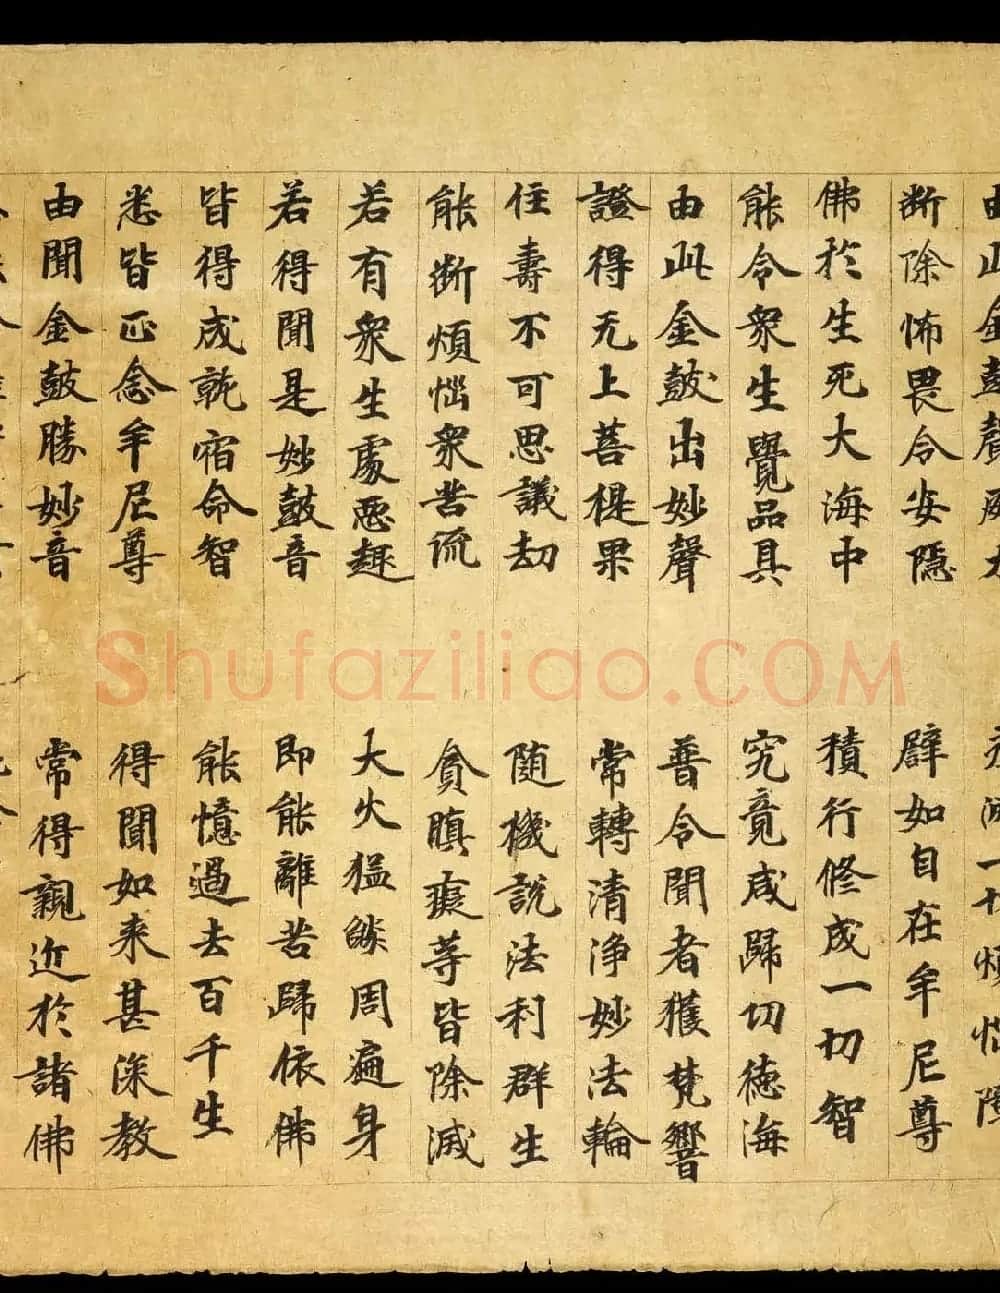 由此金鼓聲威力 永滅一切煩惱障
断除怖畏令安隱 辟如自在牟尼尊
佛於生死大海中 積行修成一切智
能令衆生覺品具 究竟咸歸切德海
由此金鼓出妙聲 普令聞者獲梵響
證得无上菩提果 常轉清淨妙法輪
住壽不可思議劫 随機說法利群生
能斷煩惱衆苦流 貪瞋癡等皆除滅
若有衆生處惡趣 大火猛焰周遍身
若得聞是妙鼓音 即能離苦歸依佛
皆得成就宿命智 能憶過去百千生
悉皆正念牟尼尊 得聞如来甚深教
由聞金鼓勝妙音 常得親近於諸佛
Shufaziliao.COM